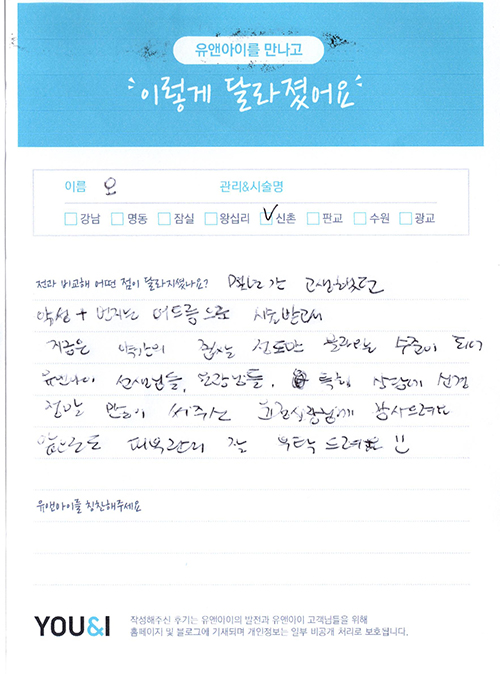 유앤아이를 만나고
이렇게 달라졌어요
이름 오 관리&시술명
강남 명동 잠실 왕십리 신촌 판교 수원 광교
전과 비교해 어떤 점이 달라지셨나요? 몇년간 고생했던
악성 + 번지는 여드름으로 시술받고서
지금은 약간의 좁쌀 정도만 올라오는 수준이 되어
유앤아이 선생님들, 특히 상담에 신경
정말 많이 써주신 실장님께 감사드려요
앞으로도 피부관리 잘 부탁드려요 :)
유앤아이를 칭찬해주세요
YOU&I
작성해주신 후기는 유앤아이의 발전과 유앤아이 고객님들을 위해
홈페이지 및 블로그에 기재되며 개인정보는 일부 비공개 처리로 보호됩니다.